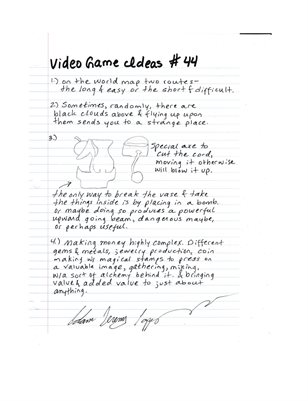 Video Game Ideas #44
1.) on the world map two routes-
the long & easy or the short & difficult.
2.) Sometimes, randomly, there are
black clouds above & flying up upon
them sends you to a strange place.
3.)
Special axe to
cut the cord,
moving it otherwise
will blow it up.
The only way to break the vase & take
the things inside is by placing in a bomb.
or maybe doing so produces a powerful
upward going beam, dangerous maybe,
or perhaps useful.
4.) Making money highly complex. Different
gems & metals, jewelry production, coin
making w/ magical stamps to press on
a valuable image, gathering, mixing,
w/a sort of alchemy behind it. & bringing
value & added value to just about
anything.
Adam Jeremy